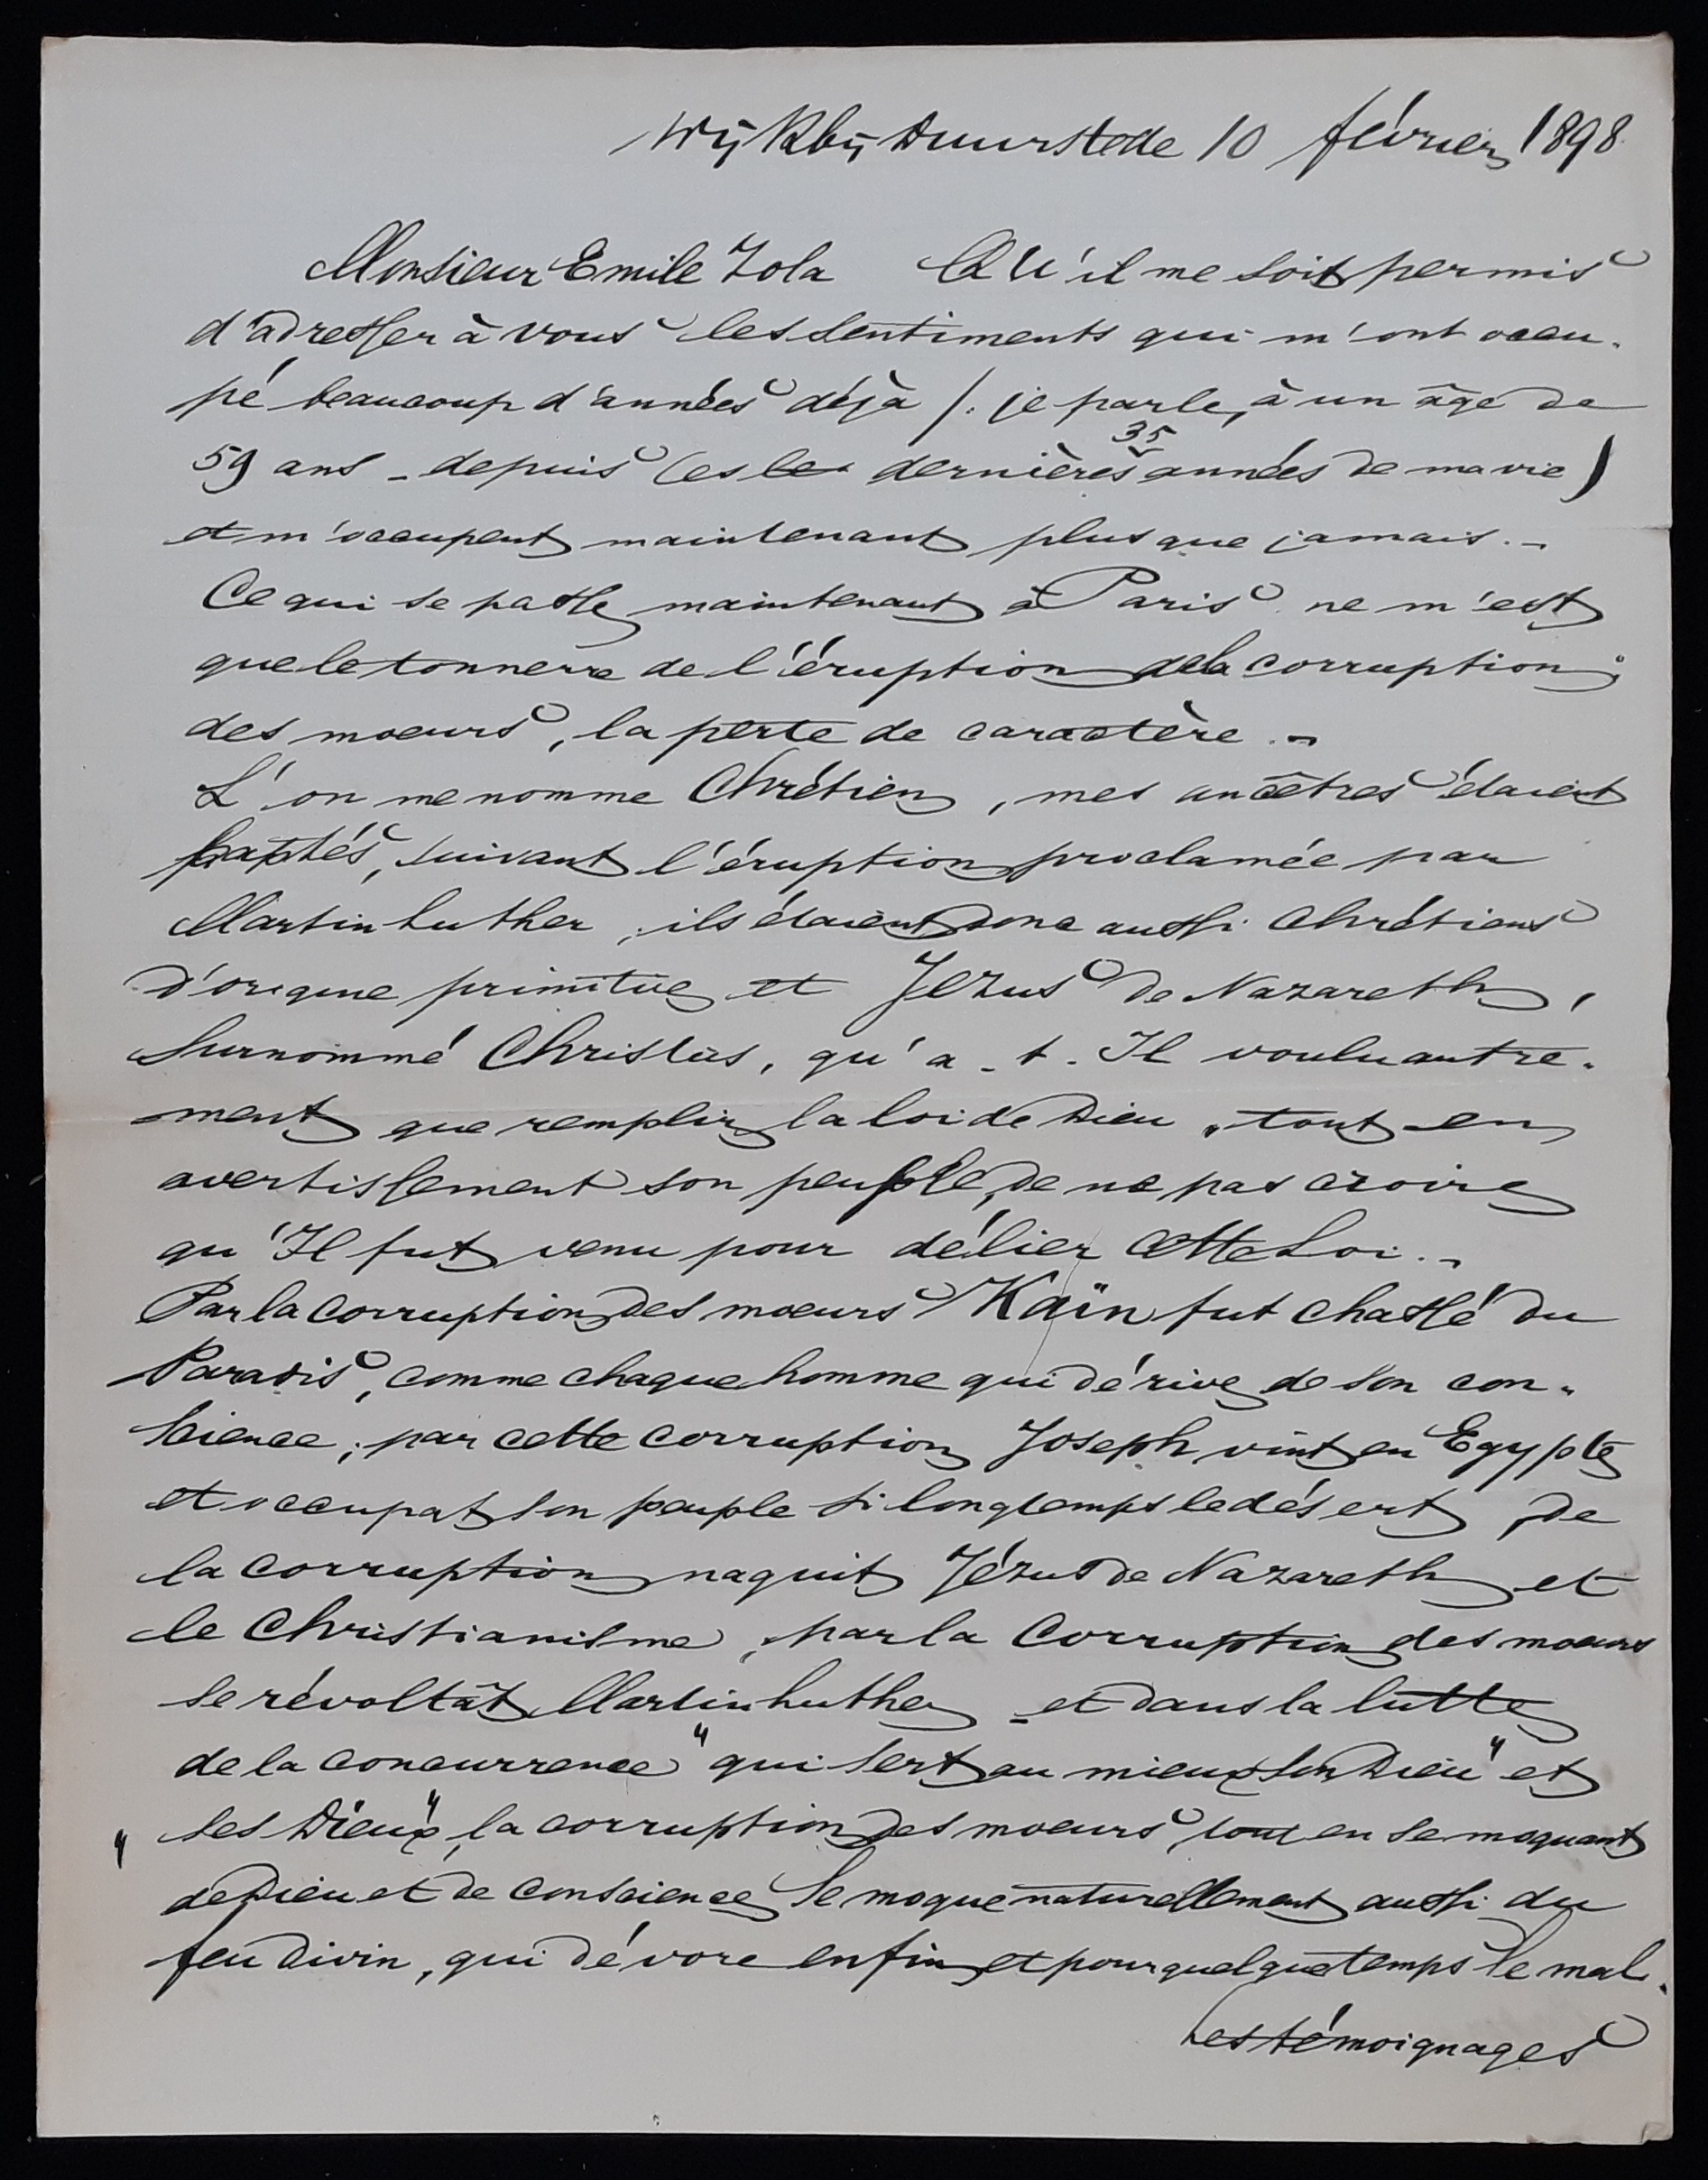 Wijk bij Duurstede 10 février 1898
Monsieur Emile Zola Qu'il me soit permis
d'adresser à vous les sentiments qui m'ont occu-
pé beaucoup d'années déjà /: je parle, à un âge de
59 ans - depuis les dernières 35 années de ma vie)
et m'occupent maintenant plus que jamais. -
Ce qui se passe maintenant à Paris ne m'est
que le tonnerre de l'éruption de la corruption
des moeurs, la perte de caractère. -
L'on me nomme Chrétien, mes ancêtres étaient
suivant l'éruption proclamée par
Martin Luther, ils étaient donc aussi Chrétiens
d'origine primitive et Jezus de Nazareth,
surnommé Christus, qu'a-t-Il voulu autre-
ment que remplir la loi de Dieu, tout en
avertissement son peuple, de ne pas croire
qu'Il fut venu pour délier cette Loi. -
Par la corruption des moeurs Kaïn fut chassé du
Paradis, comme chaque homme qui dérive de son con-
science; par cette corruption Joseph vint en Egypte
et occupat son peuple si longtemps le désert, de
la corruption naquit Jézus de Nazareth et
le Christianisme, par la Corruption des moeurs
se révoltât Martin Luther - et dans la lutte
de la concurrence "qui sert au mieux son Dieu" et
"ses Dieux", la corruption des moeurs, tout en se moquant
de Dieu et de conscience se moque naturellement aussi du
feu divin, qui dévore enfin et pour quelque temps le mal.
Les témoignages